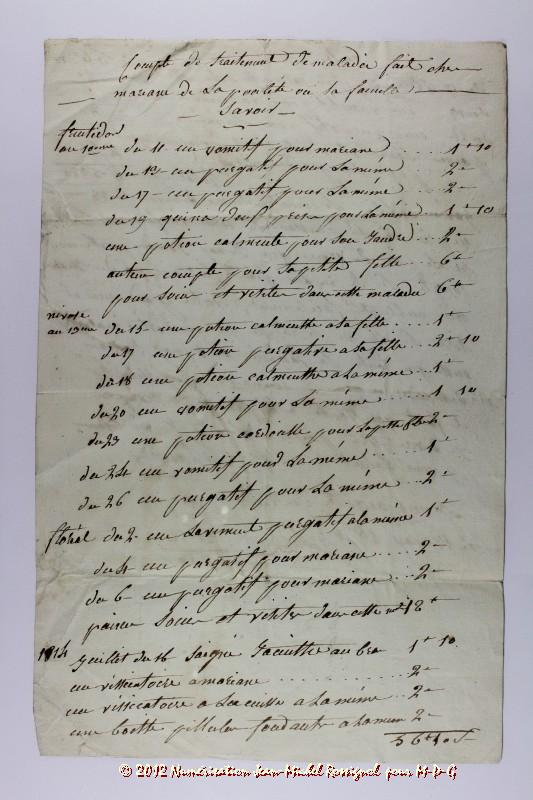 Compte de traitement de maladie fait che
mariane de La
Savoir
fructidor
au 10eme du 11 un vomitif pour mariane ... 1 " 10
du 12 un purgatif pour La même ... 2 "
du 17 un purgatif pour La même ... 2 "
du 19 quina pour La même 1 " 10
une potion calmente pour son ... 2 "
autre compte pour Sa petite fille ... 6 tt
pour soin et visites dans cette maladie 6 tt
nivose
au 13me du 15 une potion calmentte a la fille .... 1 "
du 17 une potion purgative a la fille ... 2 " 10
du 18 une potion calmentte a La même ... 1 "
du 20 un vomitif pour La même ... 1 10
du 23 une potion pour La ptte flle 2 "
du 24 un vomitif pour La même ... 1 "
du 26 un purgatif pour La même ... 2 "
floréal du 2 un Laviment purgatif a la même 1 "
du 4 un purgatif pour mariane .... 2 "
du 6 un purgatif pour mariane ... 2 "
soins et visites dans cette 12 tt
1814 Juillet du 16 Saigné au bra 1 " 10
un vissicatoire a mariane .......... 2 "
un vissicatoire a La cuisse a La même .. 2 "
une boette pillules fondante a La mem 2 "
56 tt 10 s
© 2012 Numérisation Jean-Michel Rossignol pour M-D-G